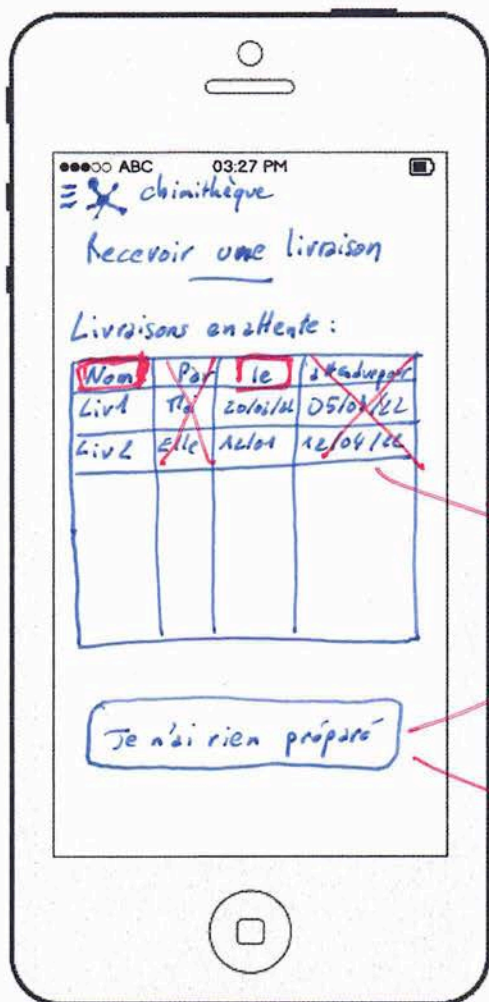 ABC 03:27 PM
chimithèque
Recevoir une livraison
Livraisons en attente :
Nom Par le attendue pour
Liv1 20/01/22 05/01/22
Liv2 Elle 12/01 12/04/22
Je n'ai rien préparé